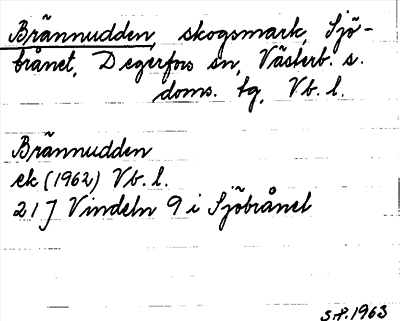 Brännudden, skogsmark, Sjö-
brånet, Degerfors sn, Västerb. s.
doms. tg, Vb. l.
Brännudden
ek (1962) Vb. l.
21J Vindeln 9 i Sjöbrånet
S.P. 1963